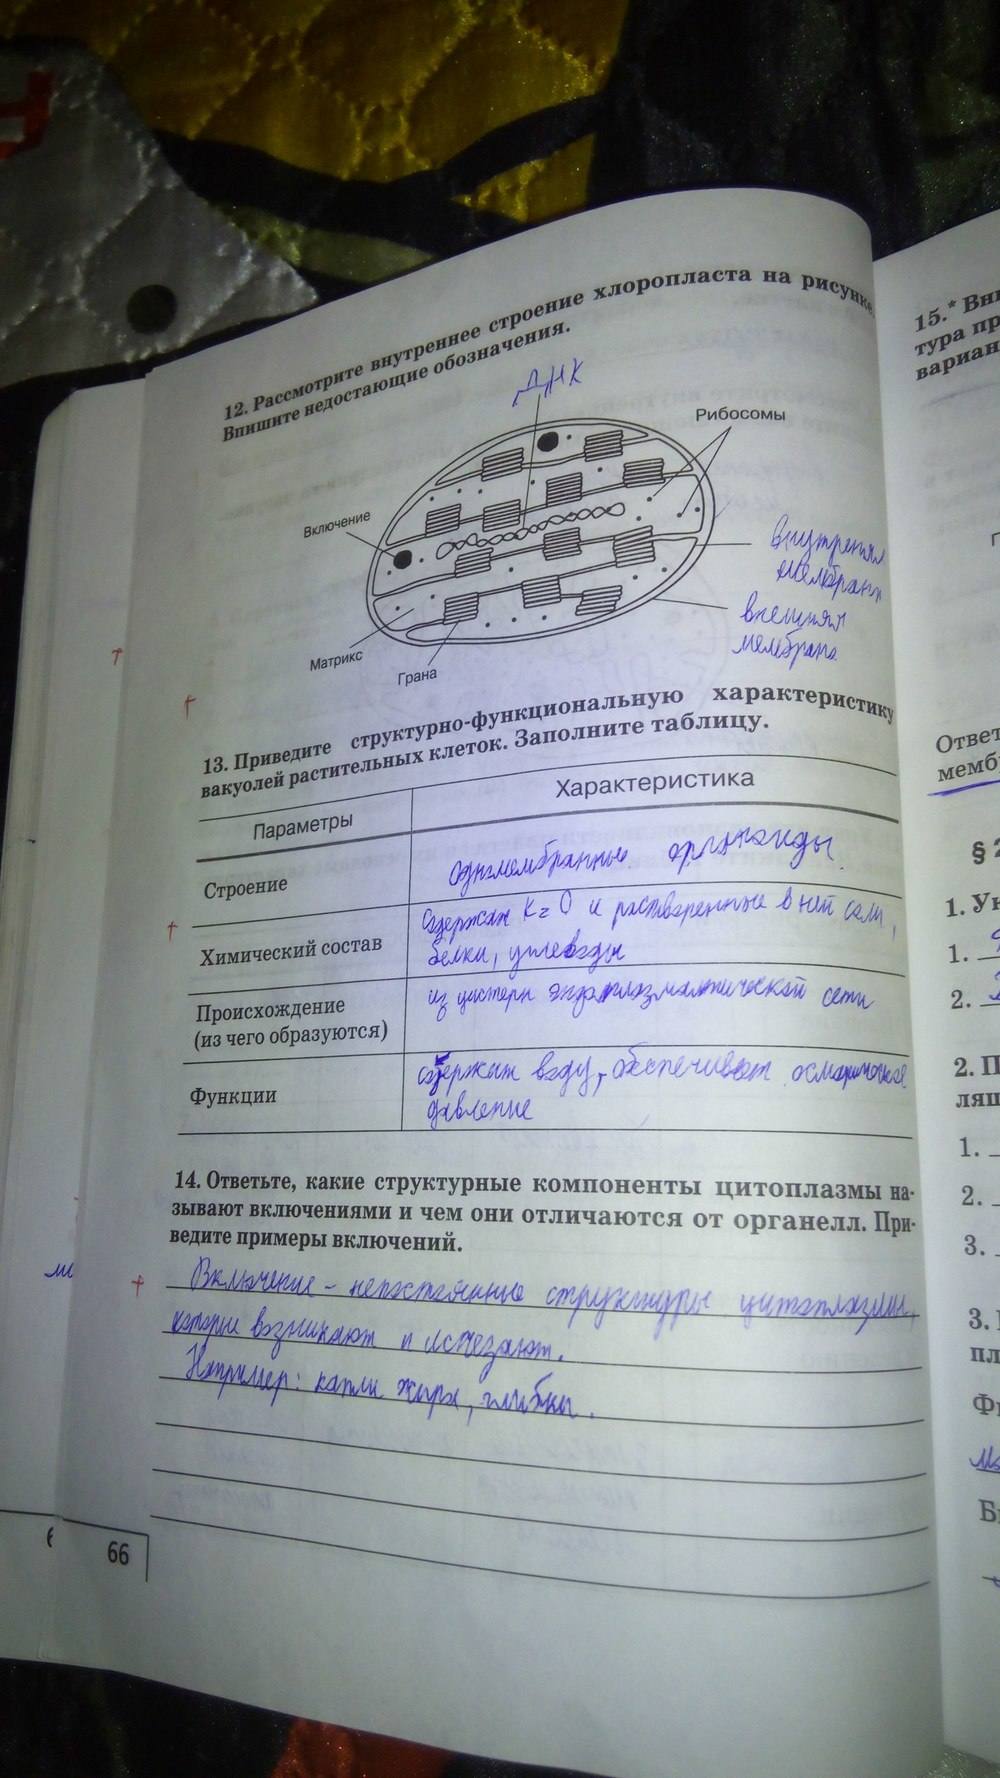 12. Рассмотрите внутреннее строение хлоропласта на рисунке.
Впишите недостающие обозначения.
ДНК
Рибосомы
Включение
внутренняя
мембрана
внешняя
мембрана
Матрикс
Грана
13. Приведите структурно-функциональную характеристику
вакуолей растительных клеток. Заполните таблицу.
Параметры
Характеристика
Строение
одномембранные органоиды.
Химический состав
содержат
и растворенные в ней соли,
белки, углеводы
Происхождение
(из чего образуются)
из цистерн эндоплазматической сети
Функции
содержат воду, обеспечивают осмотическое
давление
14. Ответьте, какие структурные компоненты цитоплазмы на-
зывают включениями и чем они отличаются от органелл. При-
ведите примеры включений.
Включение – непостоянные структуры цитоплазмы,
которые возникают и исчезают.
Например: капли жира, глыбки.
66
15.* Вни
тура пр
вариан
Ответ
мембр
§ 2
1. Ук
1.
2.
2. П
ляц
1.
2.
3.
3.
пл